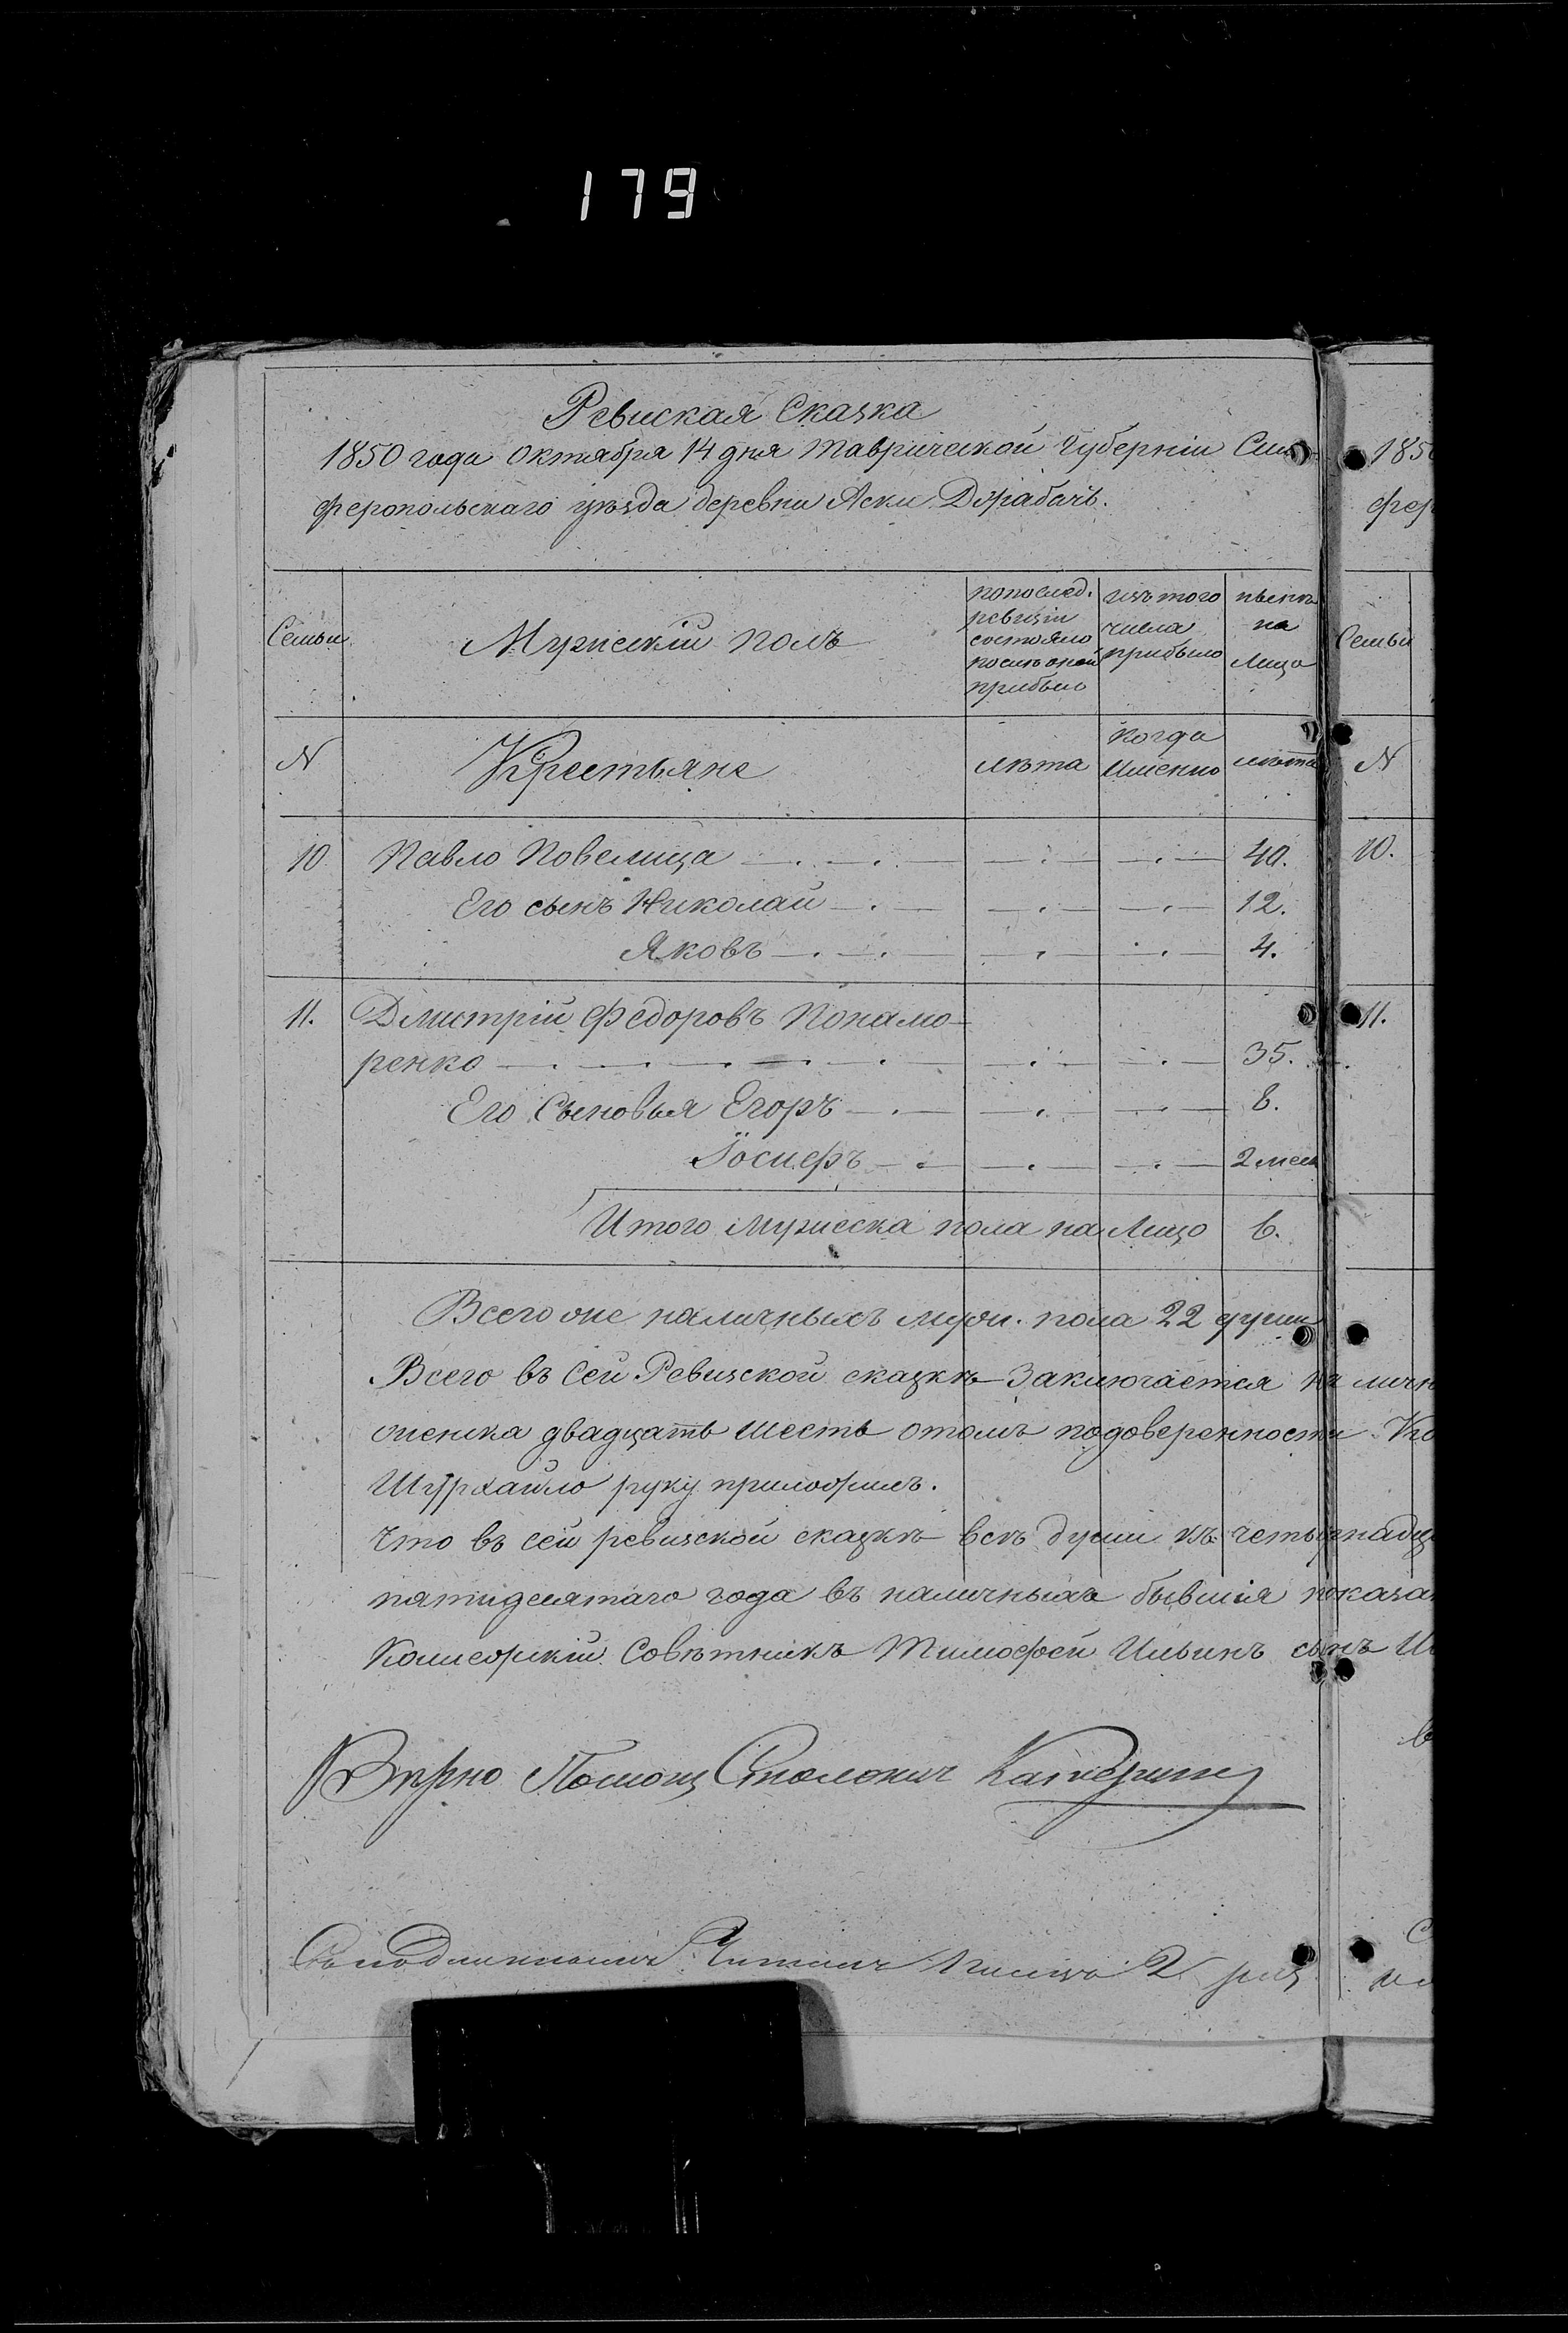 179
Ревиская Сказка
1850 года Октября 14 дня Таврической Губерніи Сим
1850
феропольскаго уѣзда деревни Аски Джрабачъ.
фер
Семьи
Мужескій полъ
попослед. ревизіи состояло послѣ оной прибыло
изъ того числа прибыло
нынѣ на Лицо
Семьи
N
Крестьяне
лѣта
когда Именно
лѣта
N
10. Павло Повелица 40.
10.
Его сынъ Николай 12.
Яковъ 4.
11. Дмистрій Федоровъ Понамо-
11.
ренко 35.
Его Сыновья Егоръ 8.
Іосифъ 2 мес
Итого мужеска пола на Лицо 6.
Всего же наличныхъ муж. пола 22 души
Всего въ сей Ревизской сказкѣ Заключается на личн
женска двадцать шесть отомъ подоверенности Ко
руку приложилъ.
Что въ сей ревизской сказкѣ всѣ души къ четырнадц
пятидесятаго года въ наличныхъ бывшія показан
Колежскій Совѣтникъ Тимофей Ильинъ сынъ
Вѣрно Помощ Столонач
Съ подлинымъ Читалъ писецъ 2 раз